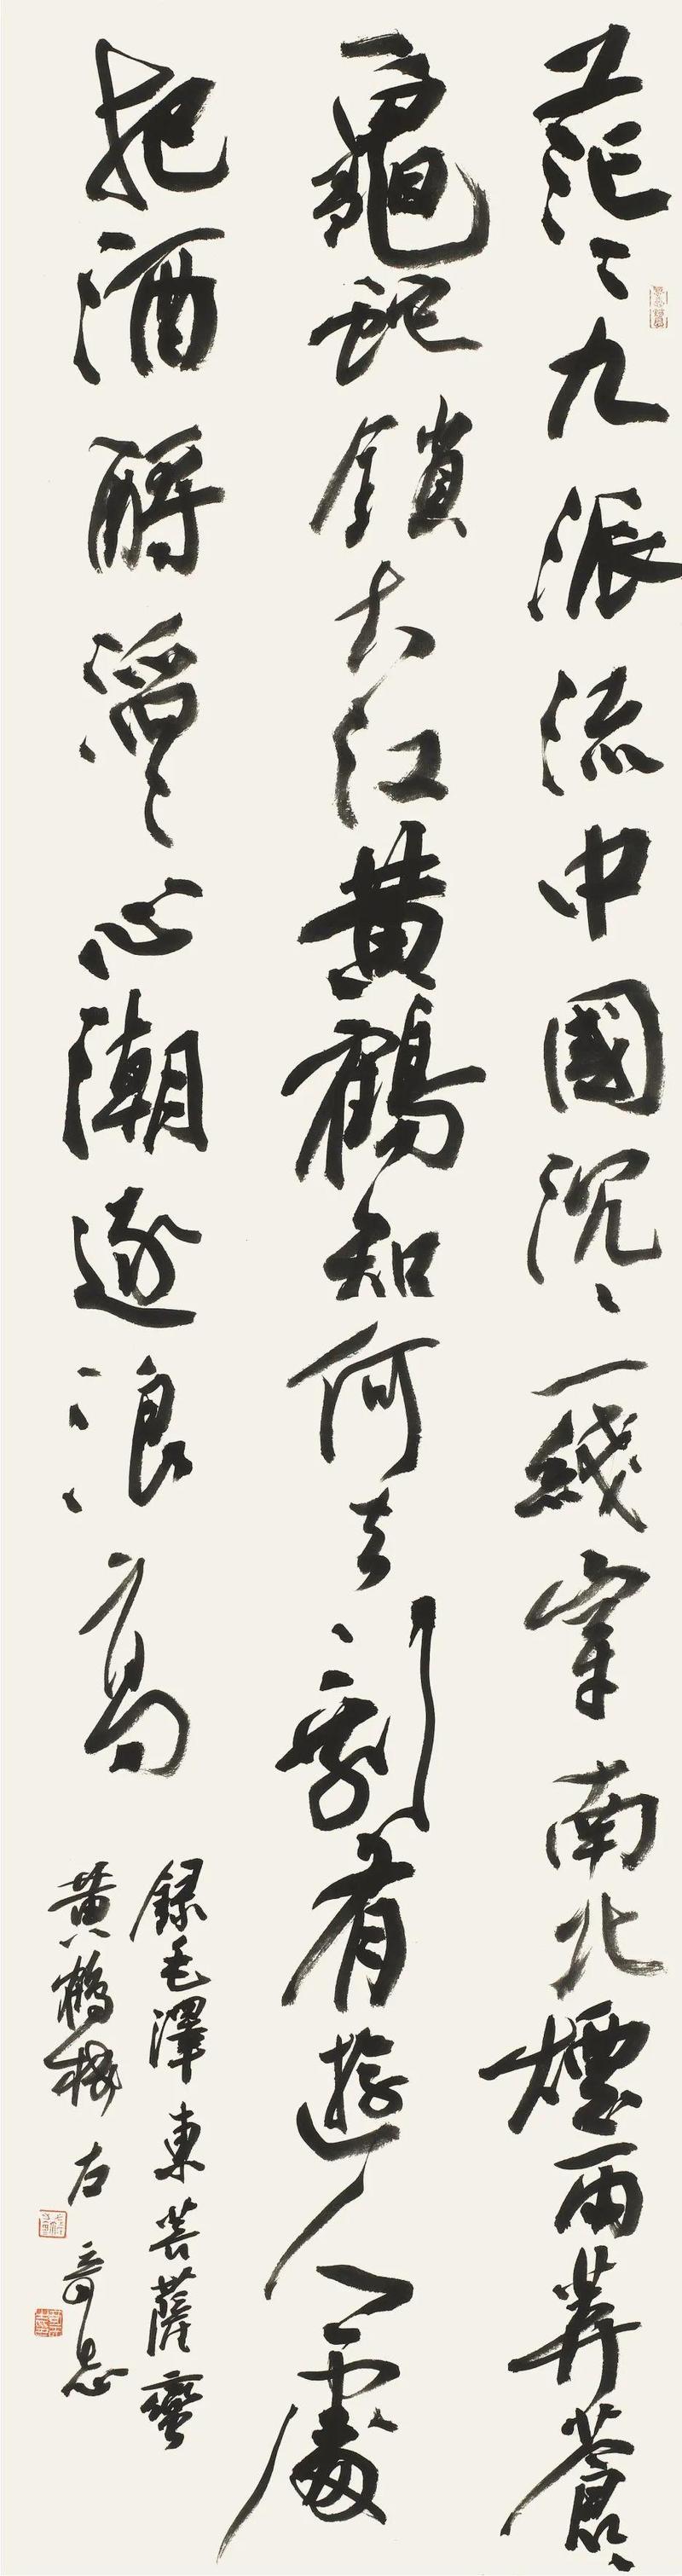 茫々九派流中國沉々一綫穿南北煙雨莽蒼々
龜蛇鎖大江黃鶴知何去剩有遊人處
把酒酹滔々心潮逐浪高
錄毛澤東菩薩蠻
黃鶴樓 左奇志